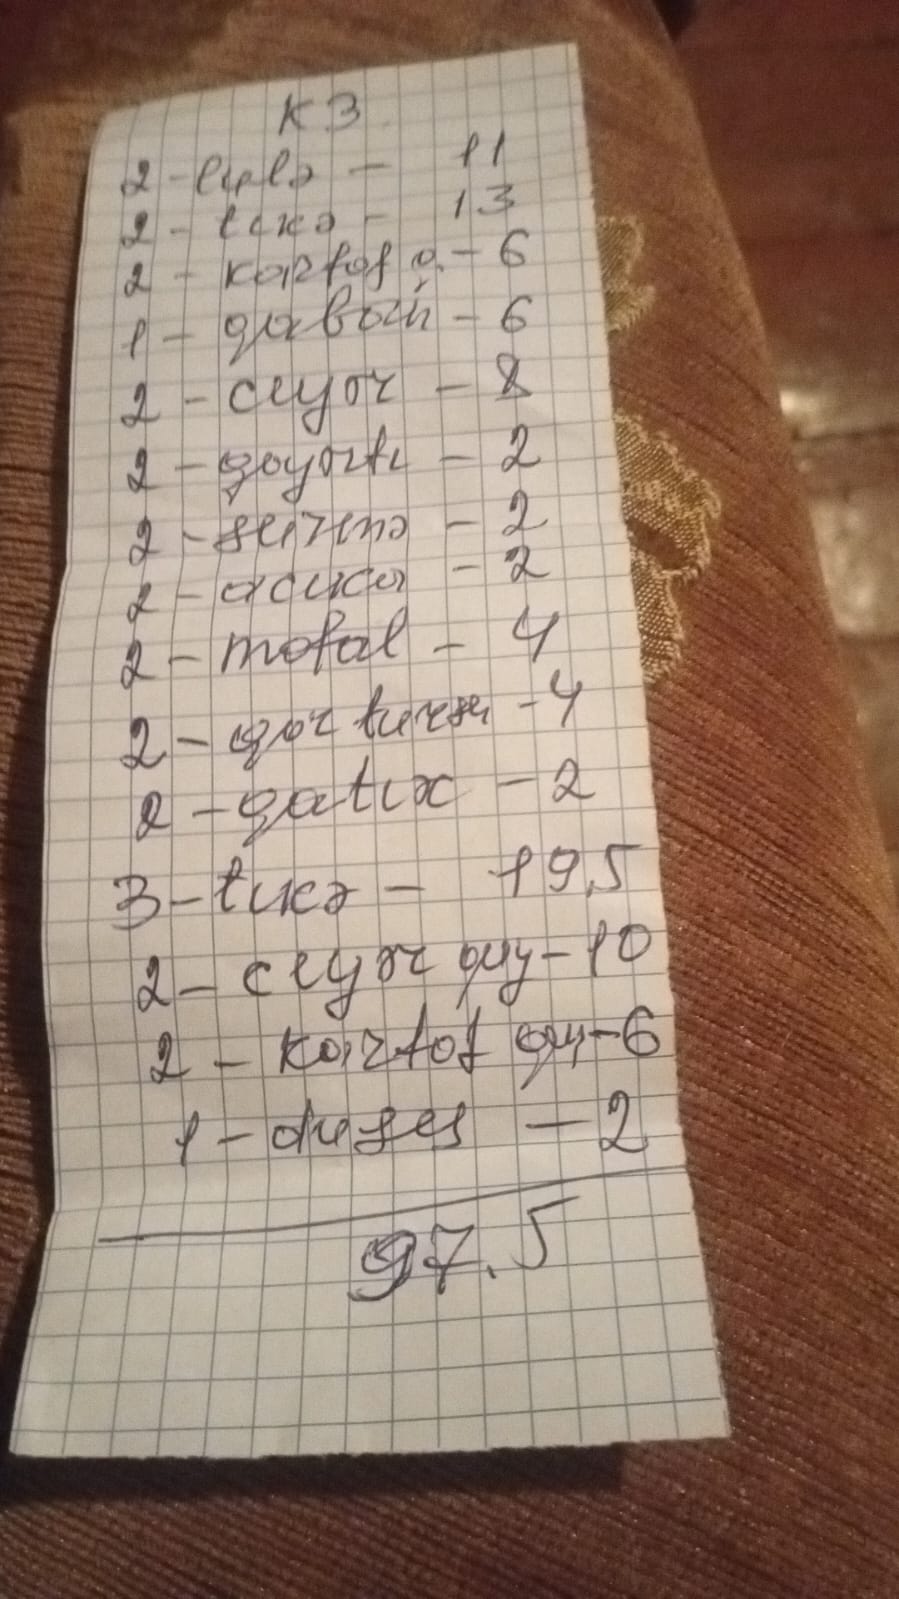 K3
2 - lulə - 11
2 - tikə - 13
2 - kartof q. - 6
1 - qabavoy - 6
2 - ciyər - 8
2 - göyərti - 2
2 - sirmə - 2
2 - acika - 2
2 - motal - 4
2 - qor turşu - 4
2 - qatıx - 2
3 - tikə - 19,5
2 - ciyər quy - 10
2 - kartof quy - 6
1 - duşes - 2
97.5